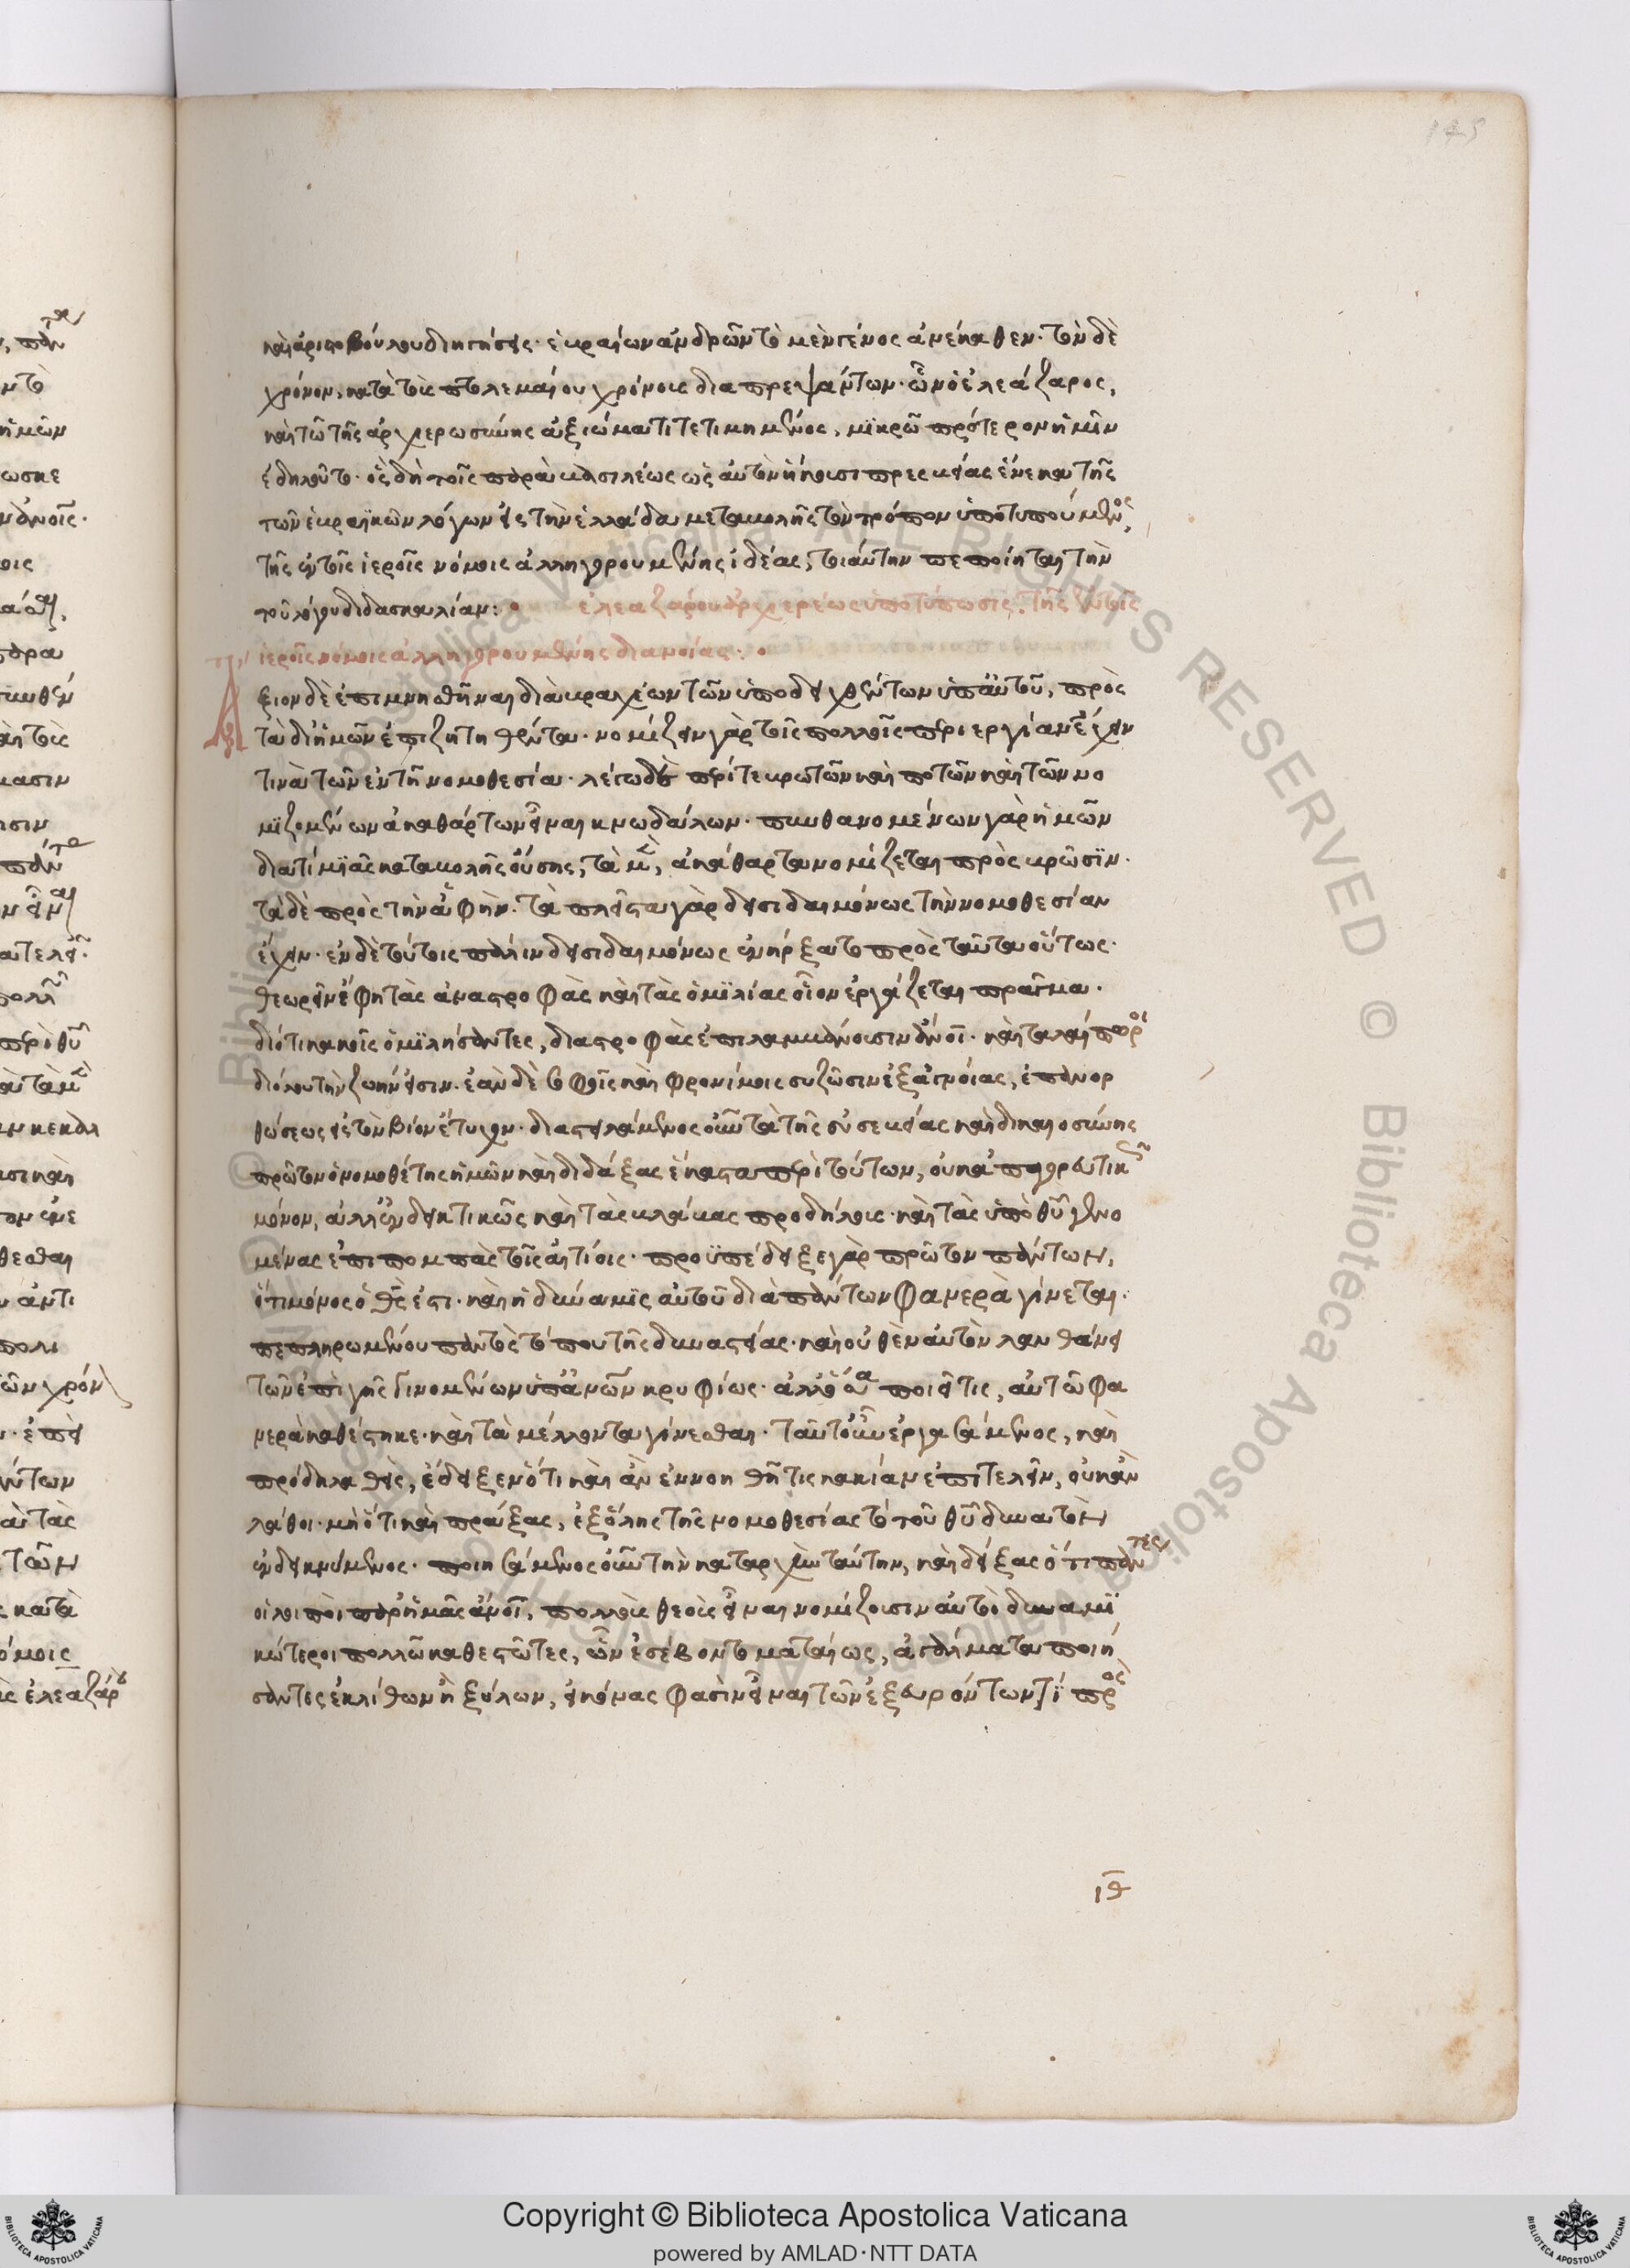 καὶ ἀριστοβούλου διηγήσεις· ἑβραίων ἀνδρῶν τὸ μὲν γένος ἀνέκαθεν· τὸν δὲ
χρόνον, κατὰ τοὺς πτολεμαίου χρόνους διαπρεψάντων· ὧν ὁ ἐλεάζαρος,
καὶ τῶ τῆς ἀρχιερωσύνης ἀξιώματι τετιμημένος, μικρῶ πρότερον ἡμῖν
ἐδηλοῦτο· ὃς δὴ τοῖς παρὰ βασιλέως ὡς αὐτὸν ἥκουσι πρεσβείας ἕνεκα τῆς
τῶν ἑβραϊκῶν λόγων εἰς τὴν ἑλλάδα μεταβολῆς τὸν τρόπον ὑποτυπούμενος,
τῆς ἐν τοῖς ἱεροῖς νόμοις ἀλληγορουμένης ἰδέας, τοιαύτην πεποίηται τὴν
τοῦ λόγου διδασκαλίαν: ἐλεαζάρου ἀρχιερέως ὑποτύπωσις, τῆς ἐν τοῖς
ἱεροῖς νόμοις ἀλληγορουμένης διανοίας:
Ἄξιον δὲ ἐπιμνησθῆναι διὰ βραχέων τῶν ὑποδειχθέντων ὑπ' αὐτοῦ, πρὸς
τὰ δι' ἡμῶν ἐπιζητηθέντα· νομίζειν γὰρ τοῖς πολλοῖς περιεργίαν ἔχειν
τινὰ τῶν ἐν τῆ νομοθεσία· λέγω δὲ περί τε βρωτῶν καὶ ποτῶν καὶ τῶν νο
μϊζομένων ἀκαθάρτων εἶναι κνωδάλων· πυνθανομένων γὰρ ἡμῶν
διατί μϊᾶς καταβολῆς οὔσης, τὰ μὲν, ἀκάθαρτα νομίζεται πρὸς βρῶσϊν·
τὰ δὲ πρὸς τὴν ἁφὴν· τὰ πλεῖστα γὰρ δεισιδαιμόνως τὴν νομοθεσίαν
ἔχειν· ἐν δὲ τούτοις πάλιν δεισιδαιμόνως ἐνήρξατο πρὸς ταῦτα οὕτως·
θεωρεῖν ἔφη τὰς ἀναστροφὰς καὶ τὰς ὁμϊλίας οἷον ἐργάζεται πρᾶγμα·
διότι κακοῖς ὁμϊλήσαντες, διαστροφὰς ἐπιλαμβάνουσιν ἄνοι· καὶ ταλαίποροι
διόλου τὴν ζωήν εἰσιν· ἐὰν δὲ σοφοῖς καὶ φρονίμοις συζῶσιν ἐξ ἀγνοίας, ἐπανορ
θώσεως εἰς τὸν βίον ἔτυχον· διαστειλάμενος οὖν τὰ τῆς εὐσεβείας καὶ δικαιοσύνης
πρῶτον ὁ νομοθέτης ἡμῶν καὶ διδάξας ἕκαστα περὶ τούτων, οὐκ ἀπαγορευτικῶς
μόνον, ἀλλ' ἐνδεικτικῶς καὶ τὰς βλάβας προδήλους· καὶ τὰς ὑπὸ θυ γινο
μένας ἐπιπομπὰς τοῖς αἰτίοις· προϋπέδειξε γὰρ πρῶτον πάντων,
ὅτι μόνος ὁ θς ἐστι· καὶ ἡ δύναμϊς αὐτοῦ διὰ πάντων φανερὰ γίνεται·
πεπληρωμένου παντὸς τόπου τῆς δυναστείας· καὶ οὐθὲν αὐτὸν λανθάνει
τῶν ἐπὶ γῆς γινομένων ὑπ' ἀνων κρυφίως· ἀλλ' ὅσα ποιεῖ τις, αὐτῶ φα
νερὰ καθέστηκε· καὶ τὰ μέλλοντα γίνεσθαι· ταῦτ' οὖν ἐργασάμενος, καὶ
πρόδηλα θεὶς, ἔδειξεν ὅτι καὶ ἂν ἐννοηθῆ τις κακίαν ἐπιτελεῖν, οὐκ ἂν
λάθοι· μὴ ὅτι καὶ πράξας, ἐξ ὅλης τῆς νομοθεσίας τὸ τοῦ θυ δυνατὸν
ἐνδεικνύμενος· ποιησάμενος οὖν τὴν καταρχὴν ταύτην, καὶ δείξας ὅτι πάντες
οἱ λοιποὶ παρ' ἡμᾶς ἄνοι, πολλοὺς θεοὺς εἶναι νομίζουσιν αὐτοὶ δυναμϊ
κώτεροι πολλῶ καθεστῶτες, ὧν ἐσέβοντο ματαίως, ἀγάλματα ποιή
σαντες ἐκ λίθων ἢ ξύλων, εἰκόνας φασὶν εἶναι τῶν ἐξευρόντων τί πρὸς
ιθ
Copyright © Biblioteca Apostolica Vaticana
powered by AMLAD·NTT DATA